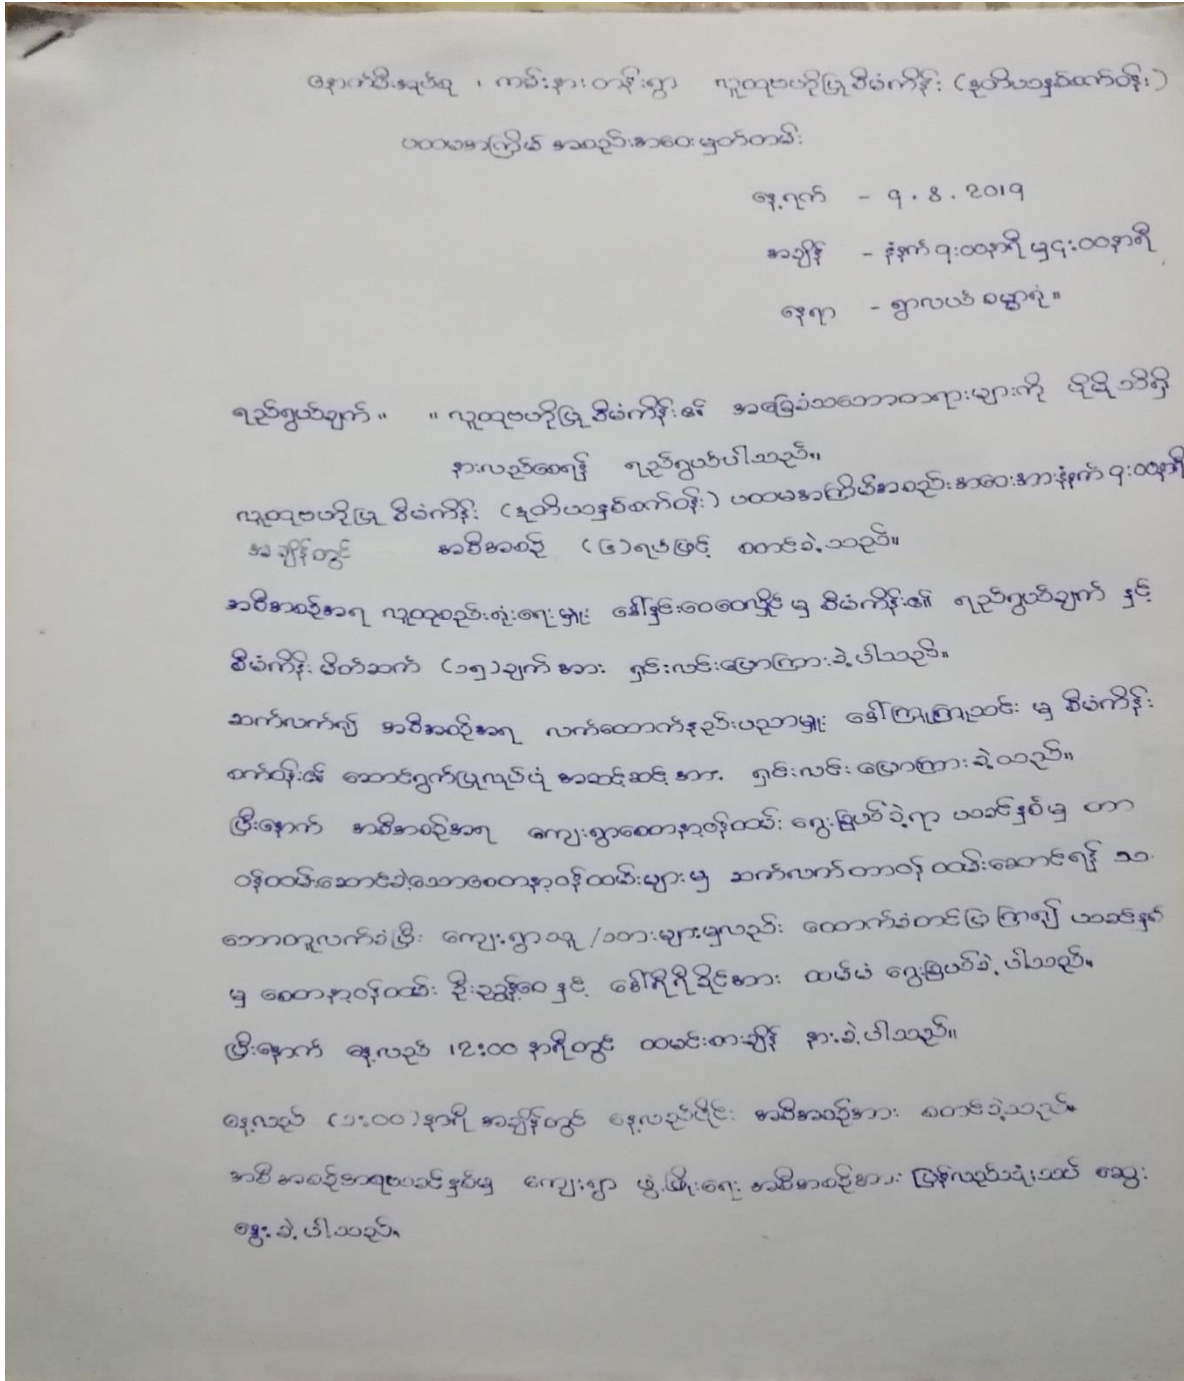 နောက်မီးအုပ်စု ၊ ကမ်းနားတန်းရွာ လူထုဗဟိုပြုစီမံကိန်း (ဒုတိယနှစ်စက်ဝန်း)
ပထမအကြိမ် အစည်းအဝေးမှတ်တမ်း
နေ့ရက် - 9 . 8 . 2019
အချိန် - နံနက် ၃:၀၀နာရီ မှ
နေရာ - ရွာလယ် ဓမ္မာရုံ။
ရည်ရွယ်ချက်။ ။ လူထုဗဟိုပြု စီမံကိန်း၏ အခြေခံသဘောတရားများကို ပိုမို သိရှိ
နားလည်စေရန် ရည်ရွယ်ပါသည်။
လူထုဗဟိုပြု စီမံကိန်း (ဒုတိယနှစ်စက်ဝန်း) ပထမအကြိမ်အစည်းအဝေးအားနံနက်
အချိန်တွင် အစီအစဉ် (၆)ရပ်ဖြင့် စတင်ခဲ့သည်။
အစီအစဉ်အရ လူထုစည်းရုံးရေးမှူး ဒေါ်နှင်းဝေဝေလှိုင် မှ စီမံကိန်း၏ ရည်ရွယ်ချက် နှင့်
စီမံကိန်း မိတ်ဆက် (၁၅)ချက် အား ရှင်းလင်းပြောကြားခဲ့ပါသည်။
ဆက်လက်၍ အစီအစဉ်အရ လက်ထောက်နည်းပညာမှူး ဒေါ်ကြူကြူသင်း မှ စီမံကိန်း
စက်ဝန်း၏ ဆောင်ရွက်ပြုလုပ်ပုံ အဆင့်ဆင့်အား ရှင်းလင်း ပြောကြားခဲ့သည်။
ပြီးနောက် အစီအစဉ်အရ ကျေးရွာစေတနာ့ဝန်ထမ်း ရွေးချယ်ခဲ့ရာ ယခင်နှစ်မှ တာ
ဝန်ထမ်းဆောင်ခဲ့သောစေတနာ့ဝန်ထမ်းများမှ ဆက်လက်တာဝန် ထမ်းဆောင်ရန် သ
ဘောတူလက်ခံပြီး ကျေးရွာသူ /သားများမှလည်း ထောက်ခံတင်ပြကြ၍ ယခင်နှစ်
မှ စေတနာ့ဝန်ထမ်း ဦးညွန့်ဝေ နှင့် အား ထပ်မံ ရွေးချယ်ခဲ့ပါသည်။
ပြီးနောက် နေ့လည် 12:00 နာရီတွင် ထမင်းစားချိန် နားခဲ့ပါသည်။
နေ့လည် (၁:၀၀)နာရီ အချိန်တွင် နေ့လည်ပိုင်း အစီအစဉ်အား စတင်ခဲ့သည်။
အစီအစဉ်အရယခင်နှစ်မှ ကျေးရွာ ဖွံ့ဖြိုးရေး အစီအစဉ်အား ပြန်လည်သုံးသပ် ဆွေး
နွေးခဲ့ပါသည်။